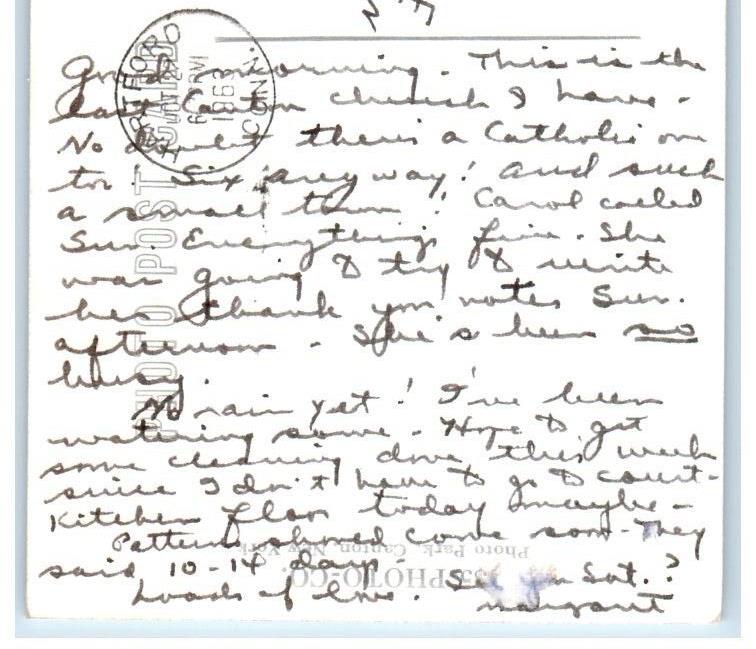 Good morning. This is the
last Canton church I have -
No doubt there's a Catholic one
too - Six anyway! And such
a small town! Carol called
Sun. Everything fine. She
was going to try to write
her thank you notes Sun.
afternoon. She's been so
busy.
No rain yet! I've been
watering some - Hope to get
some cleaning done this week
since I don't have to go to court -
Kitchen floor today maybe -
Pattern should come soon - They
said 10-14 days -
Loads of love. See you Sat.?
Margaret
HARTFORD
CONN.
OCT
6 PM
1963
PHOTO POST CARD
PHOTO-CO.
Photo Park, Canton, New York